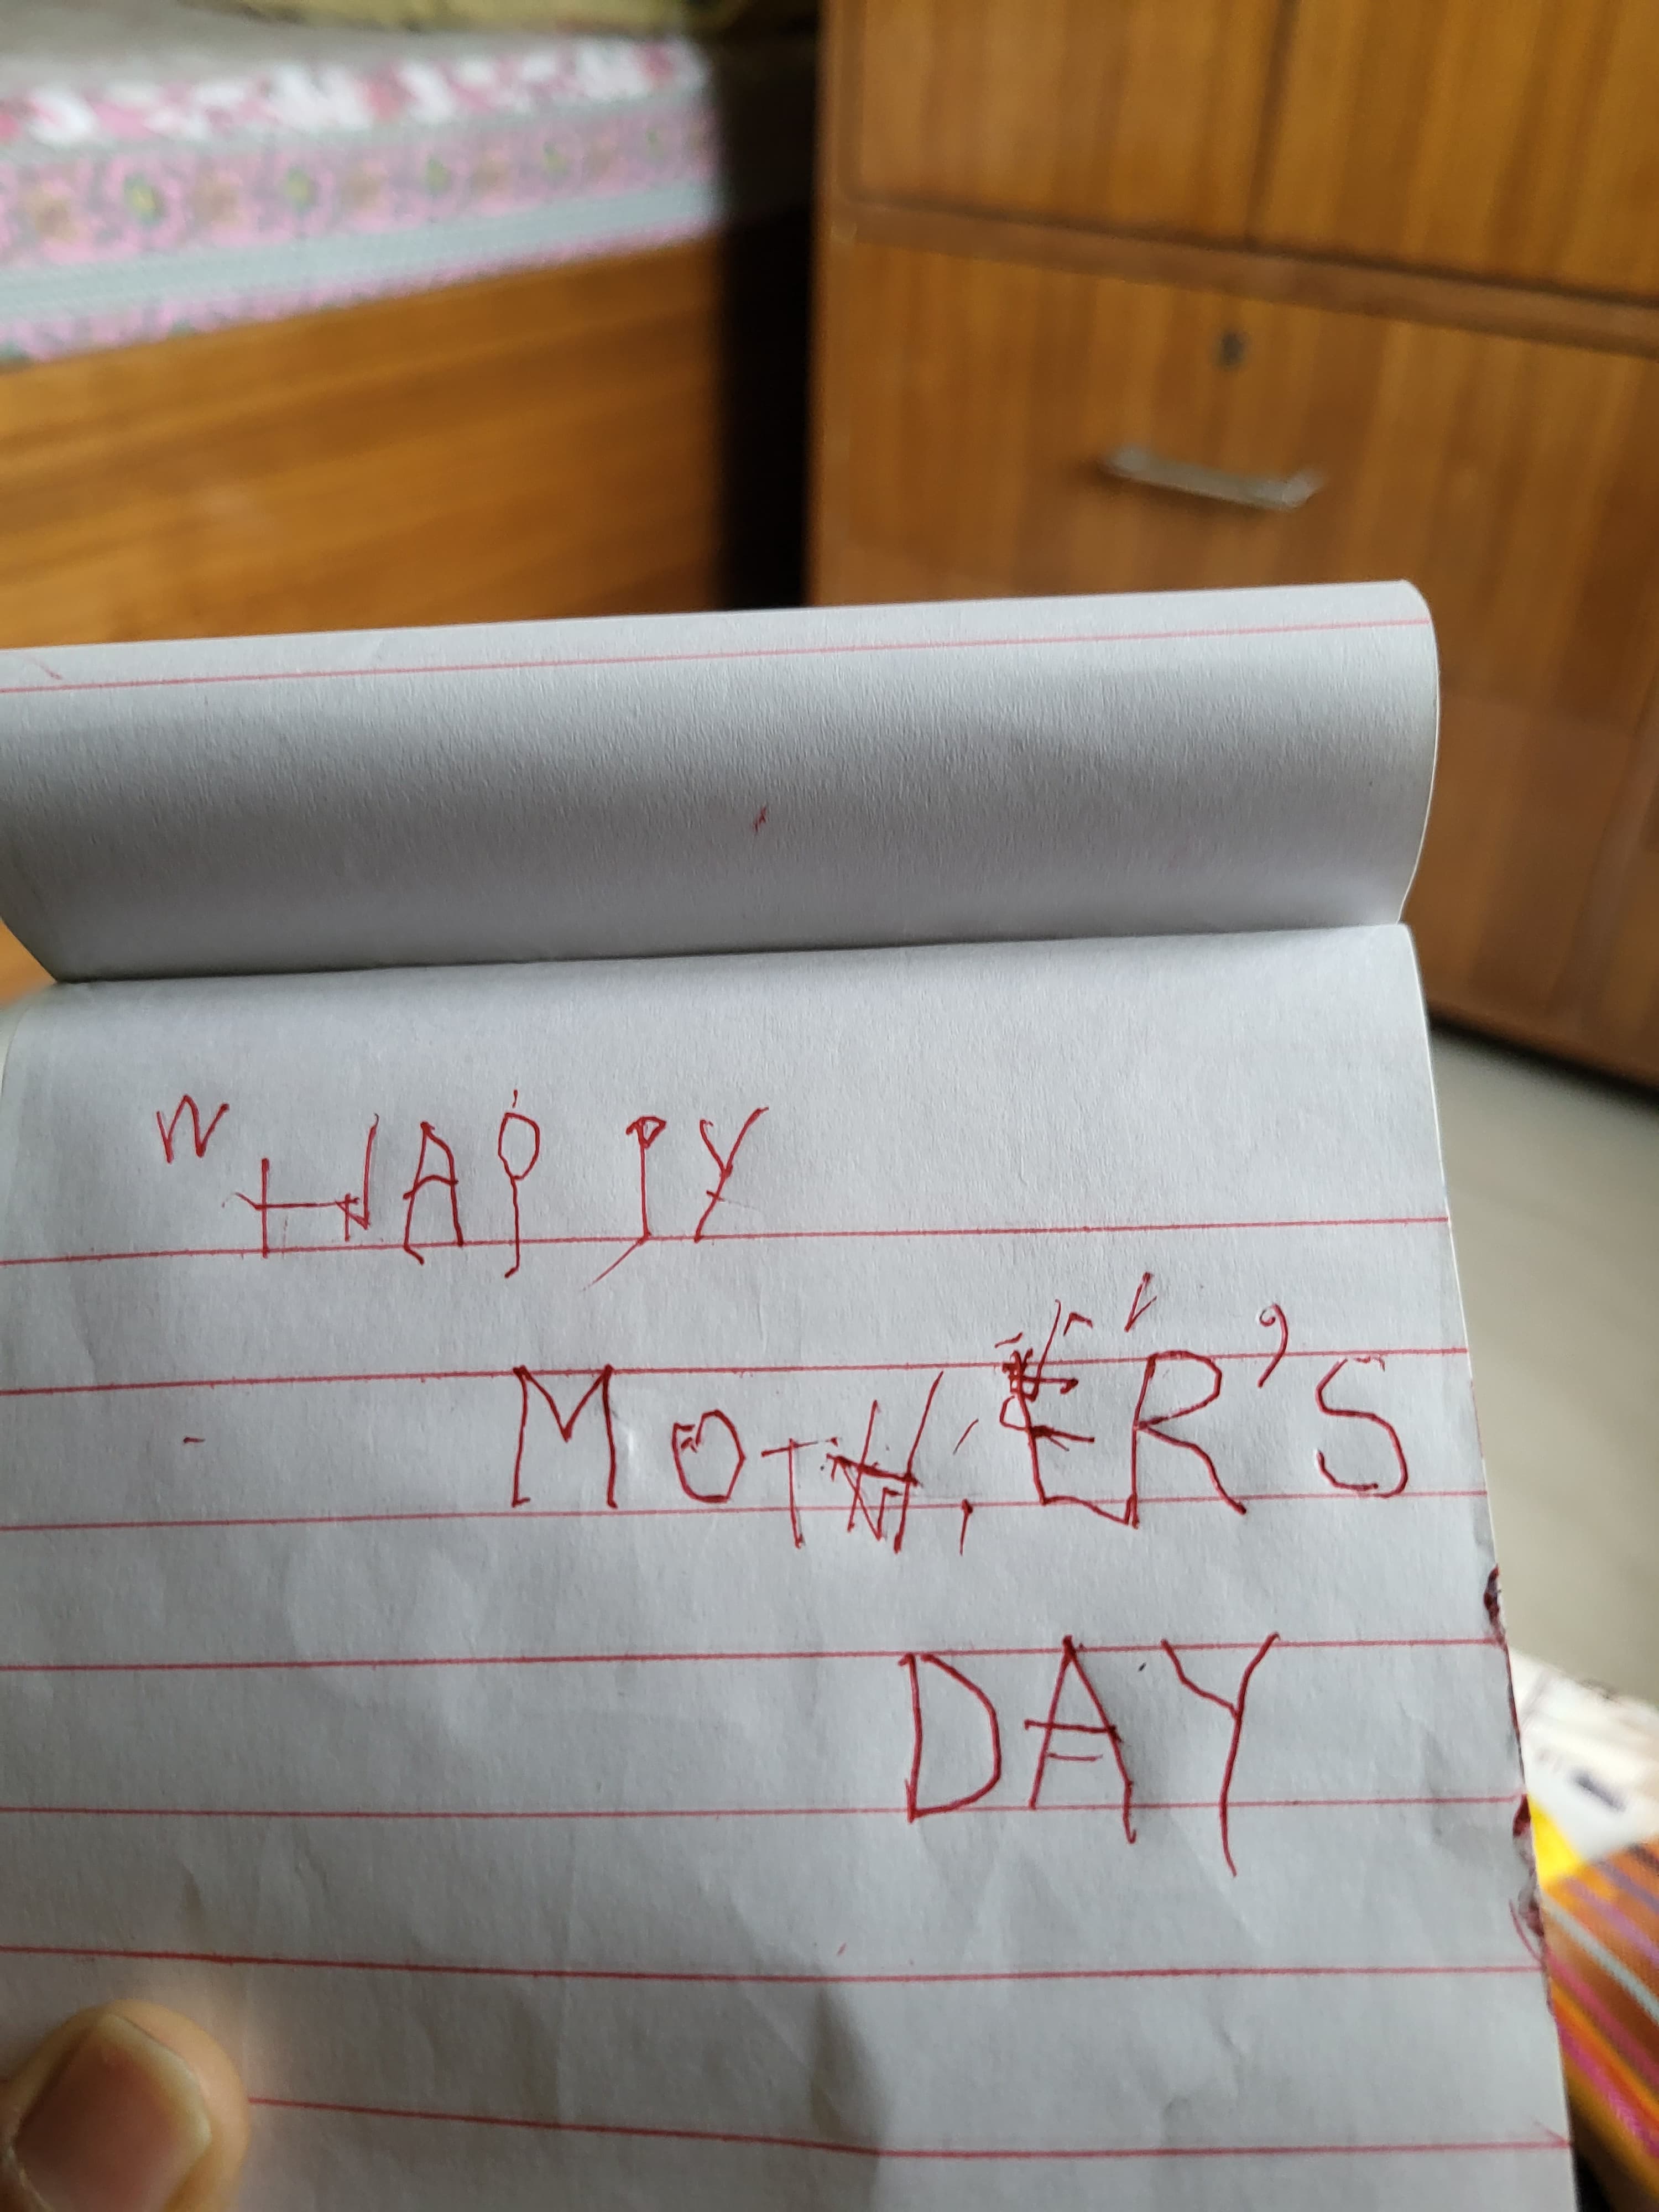 HAPPY
MOTHER'S
DAY